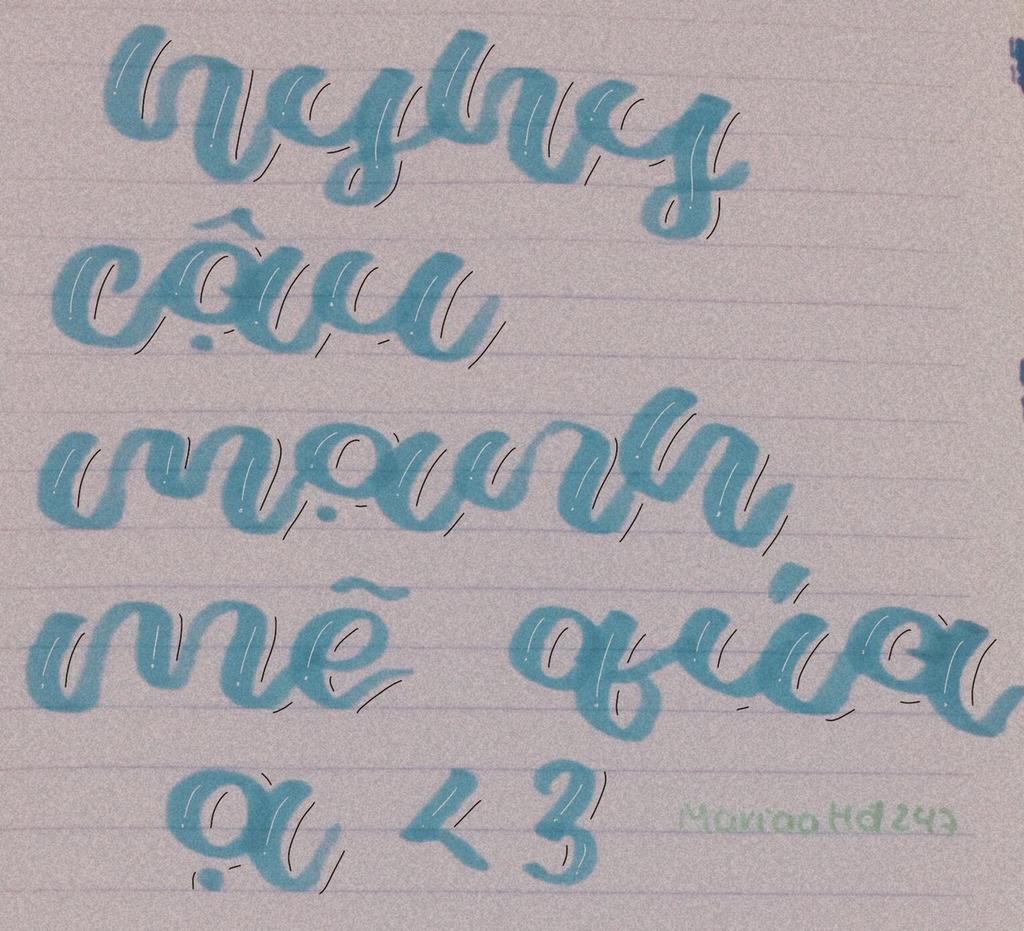 hyhy
cậu
mạnh
mẽ qúa
ạ <3
Mariao Hd 247